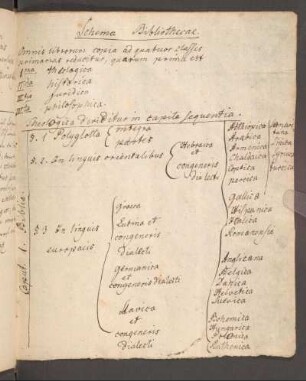 Schema Bibliothecae.
Omnis librorum copia ad quatuor classes
primarias redactus, quarum prima est
Ima theologica
IIda historica
IIItia juridica
IVta philosophica.
Theologica dividitur in capita sequentia.
Caput 1. Biblica.
§. 1 Polyglotta
integra
partes
§. 2. In linguis orientalibus
Hebraica
et
congeneris
dialecti
Aethiopica
Arabica
Armenica
Chaldaica
Coptica
persica
Syriaca
turcica
§ 3 In linguis
europaeis
Graeca
Latina et
congeneris
Dialecti
Gallica
Hispanica
Italica
Germanica
et
congeneris Dialecti
Anglicana
Belgica
Danica
Helvetica
Suecica
Slavica
et
congeneris
Dialecti
Bohemica
Hungarica
Polonica
Ruthenica